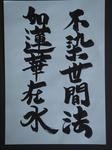 不染世間法
如蓮華在水